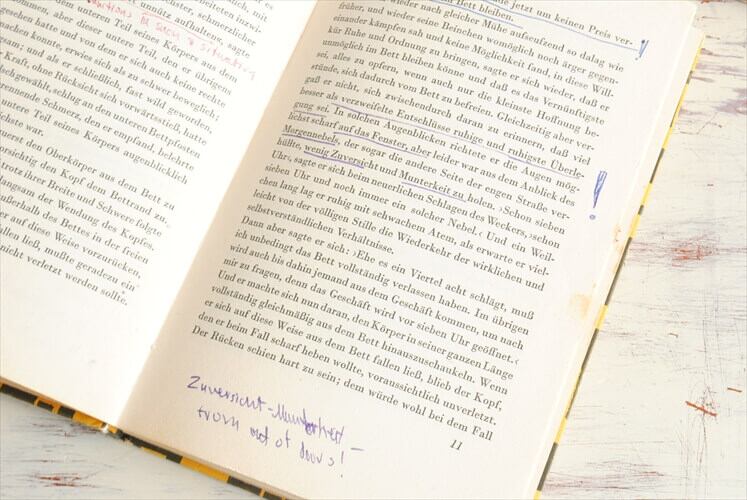 unnütz aufhaltens, sagte
dem unteren Teil seines Körpers aus dem
kommen, aber dieser untere Teil, den er übrigens
sehen hatte und von dem er sich auch keine rechte
machen konnte, erwies sich als zu schwer beweglich;
und als er schließlich, fast wild geworden,
Kraft, ohne Rücksicht sich vorwärtsstieß, hatte
gewählt, schlug an den unteren Bettpfosten
Schmerz, den er empfand, belehrte
untere Teil seines Körpers augenblicklich
war.
zuerst den Oberkörper aus dem Bett zu
vorsichtig den Kopf dem Bettrand zu.
trotz ihrer Breite und Schwere folgte
langsam der Wendung des Kopfes.
außerhalb des Bettes in der freien
er auf diese Weise vorzurücken,
fallen ließ, mußte geradezu ein
nicht verletzt werden sollte.
jetzt um keinen Preis ver-
Bett bleiben.
wieder nach gleicher Mühe aufseufzend so dalag wie
früher, und wieder seine Beinchen womöglich noch ärger gegen-
einander kämpfen sah und keine Möglichkeit fand, in diese Will-
kür Ruhe und Ordnung zu bringen, sagte er sich wieder, daß er
unmöglich im Bett bleiben könne und daß es das Vernünftigste
sei, alles zu opfern, wenn auch nur die kleinste Hoffnung be-
stünde, sich dadurch vom Bett zu befreien. Gleichzeitig aber ver-
gaß er nicht, sich zwischendurch daran zu erinnern, daß viel
besser als verzweifelte Entschlüsse ruhige und ruhigste Überle-
gung sei. In solchen Augenblicken richtete er die Augen mög-
lichst scharf auf das Fenster, aber leider war aus dem Anblick des
Morgennebels, der sogar die andere Seite der engen Straße ver-
hüllte, wenig Zuversicht und Munterkeit zu holen. ›Schon sieben
Uhr‹, sagte er sich beim neuerlichen Schlagen des Weckers, ›schon
sieben Uhr und noch immer ein solcher Nebel.‹ Und ein Weil-
chen lang lag er ruhig mit schwachem Atem, als erwarte er viel-
leicht von der völligen Stille die Wiederkehr der wirklichen und
selbstverständlichen Verhältnisse.
Dann aber sagte er sich: ›Ehe es ein Viertel acht schlägt, muß
ich unbedingt das Bett vollständig verlassen haben. Im übrigen
wird auch bis dahin jemand aus dem Geschäft kommen, um nach
mir zu fragen, denn das Geschäft wird vor sieben Uhr geöffnet.‹
Und er machte sich nun daran, den Körper in seiner ganzen Länge
vollständig gleichmäßig aus dem Bett hinauszuschaukeln. Wenn
er sich auf diese Weise aus dem Bett fallen ließ, blieb der Kopf,
den er beim Fall scharf heben wollte, voraussichtlich unverletzt.
Der Rücken schien hart zu sein; dem würde wohl bei dem Fall
11
Zuversicht-Munterkeit –
from out of doors!